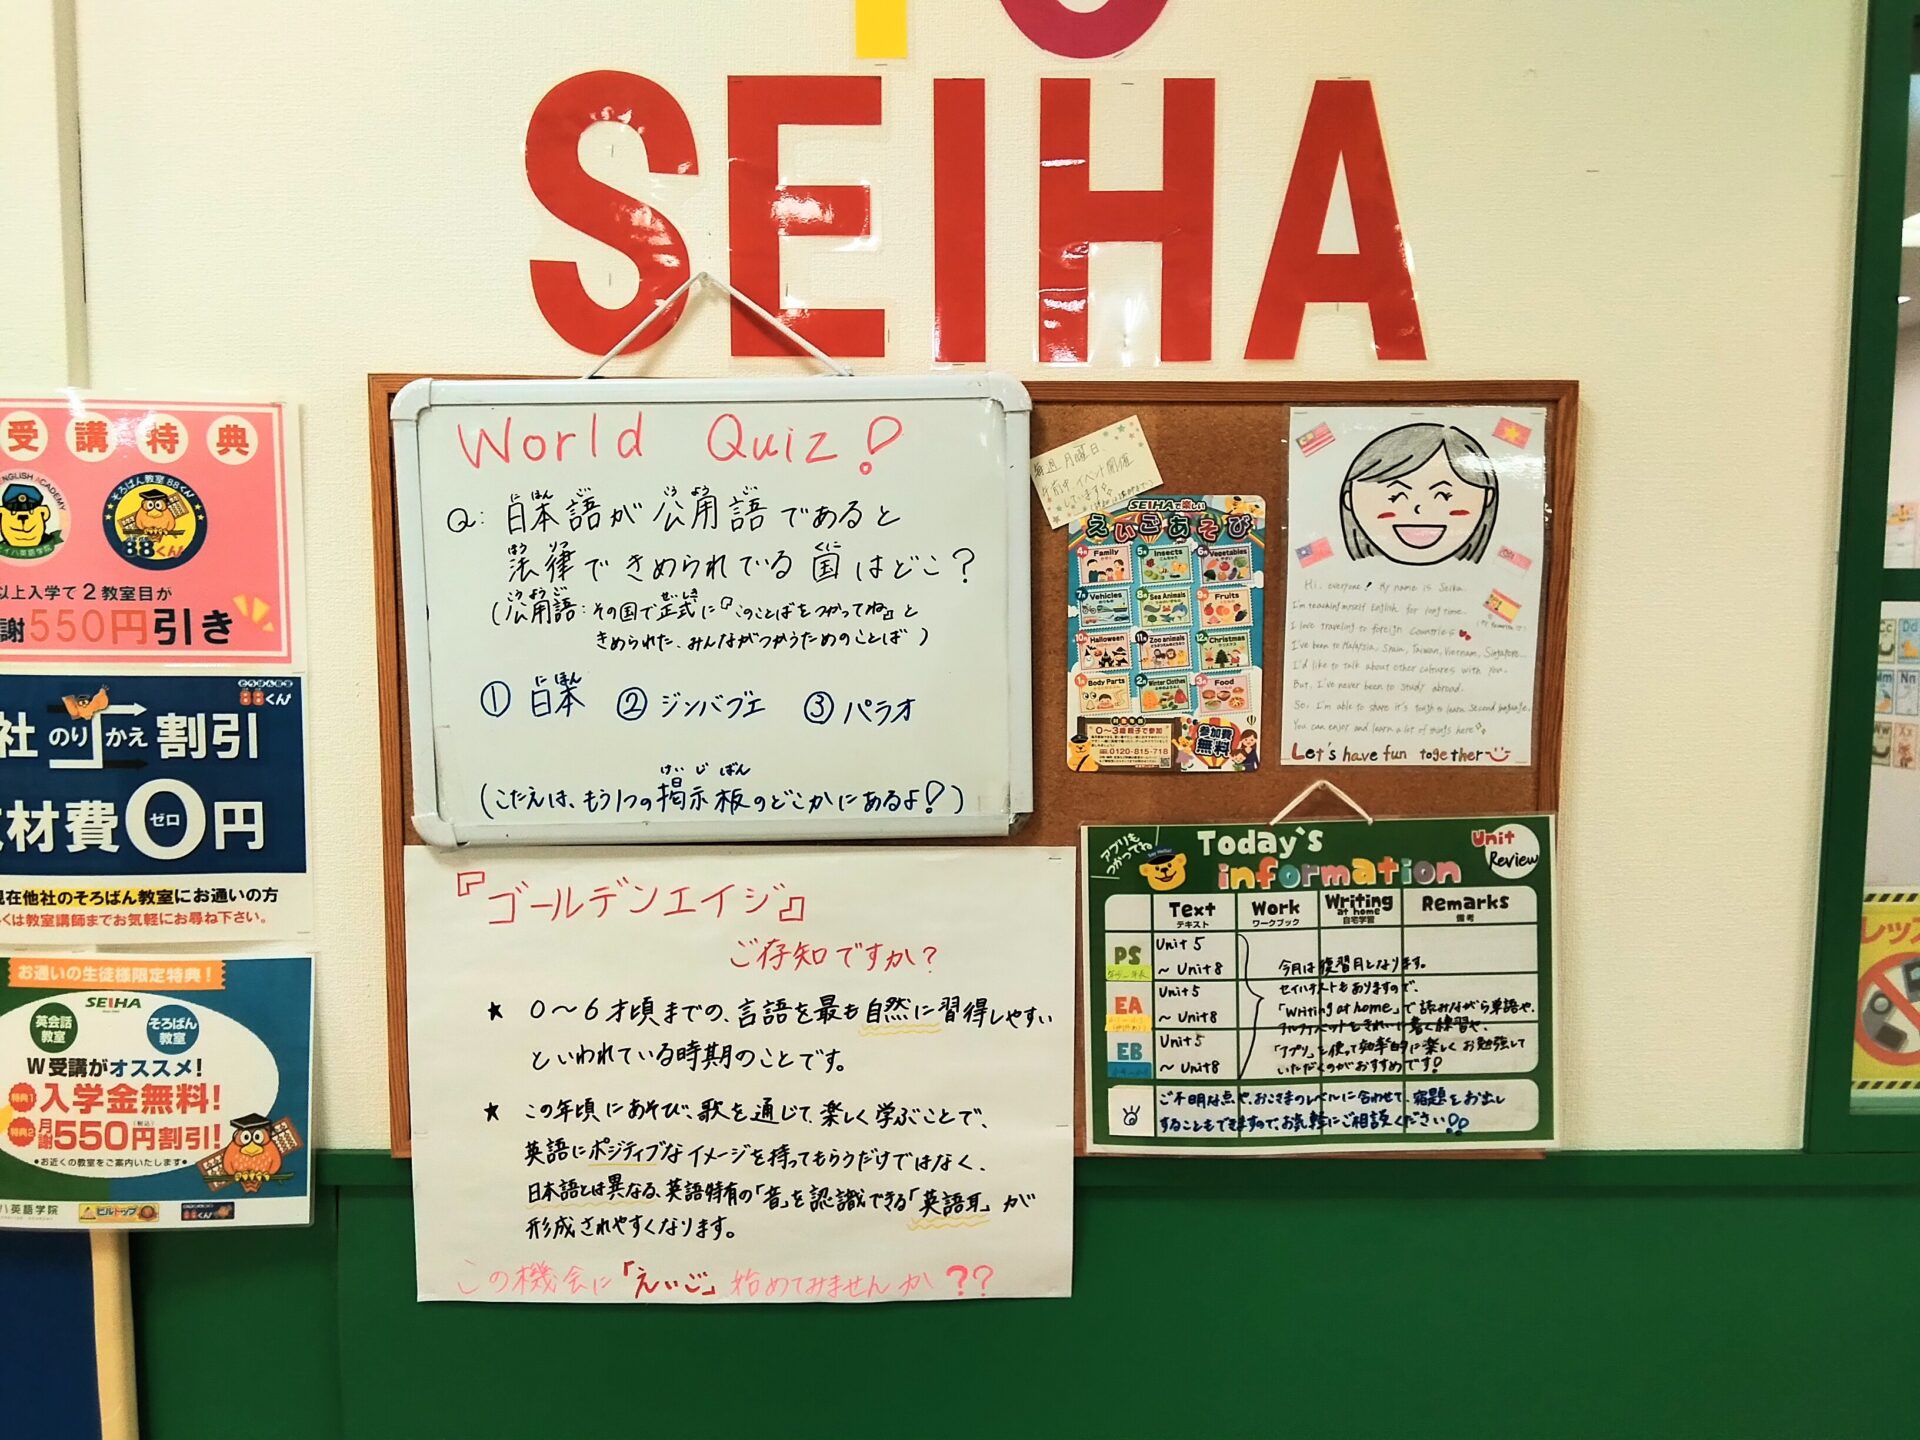 SEIHA
受講特典
ENGLISH ACADEMY
イハ英語学院
そろばん教室88くん
88くん!
以上入学で2教室目が
謝550円引き
そろばん教室
88くん!
社 のりかえ 割引
材費0円
ゼロ
現在他社のそろばん教室にお通いの方
くは教室講師までお気軽にお尋ね下さい。
お通いの生徒様限定特典!
SEIHA
英会話教室
そろばん教室
W受講がオススメ!
特典1 入学金無料!
特典2 月謝550円割引!
(税込)
●お近くの教室をご案内いたします●
ハ英語学院
World Quiz!
Q: 日本語が公用語であると
法律できめられている国はどこ?
(公用語:その国で正式に『このことばをつかってね』と
きめられた、みんながつかうためのことば)
①日本 ②ジンバブエ ③パラオ
(こたえは、もう1つの掲示板のどこかにあるよ!)
『ゴールデンエイジ』
ご存知ですか?
★ 0〜6才頃までの、言語を最も自然に習得しやすい
といわれている時期のことです。
★ この年頃にあそび、歌を通じて楽しく学ぶことで、
英語にポジティブなイメージを持ってもらうだけではなく、
日本語とは異なる、英語特有の「音」を認識できる「英語耳」が
形成されやすくなります。
この機会に「えいご」始めてみませんか??
毎週月曜日、
午前中イベント開催
しています
SEIHAで楽しい
えいごあそび
4月 Family
5月 Insects
6月 Vegetables
7月 Vehicles
8月 Sea Animals
9月 Fruits
10月 Halloween
11月 Zoo animals
12月 Christmas
1月 Body Parts
2月 Winter Clothes
3月 Food
0〜3歳親子で参加
0120-815-718
参加費無料
Hi, everyone! My name is Seika.
I'm teaching myself English for long time.
I love traveling to foreign countries
I've been to Malaysia, Spain, Taiwan, Vietnam, Singapore...
I'd like to talk about other cultures with you.
But, I've never been to study abroad.
So, I'm able to share it's tough to learn second language.
You can enjoy and learn a lot of things here
Let's have fun together
アプリもつかってね
Say Hello!
Today's information
Unit Review
Text テキスト
Work ワークブック
Writing at home 自宅学習
Remarks 備考
PS
Unit 5
〜 Unit 8
EA
Unit 5
〜 Unit 8
EB
Unit 5
〜 Unit 8
今月は復習月となります。
セイハテストもありますので、
「Writing at home」で読みながら単語や、
アルファベットをきれいに書く練習や、
「アプリ」を使って効率的に楽しくお勉強して
いただくのがおすすめです!
ご不明な点や、おこさまのレベルに合わせて、宿題をお出し
することもできますので、お気軽にご相談ください!!
レッス
Cc
Dd
Nn